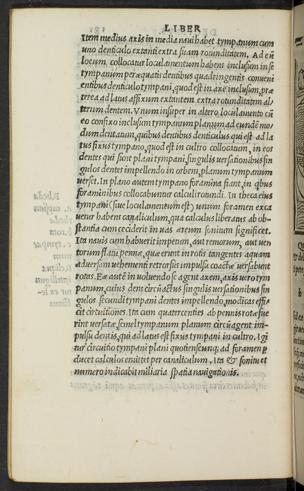 LIBER
Item medius axis in media navi habet tympanum cum
uno denticulo extanti extra suam rotunditatem. Ad eũ
locum, collocatur loculamentum habens inclusum in se
tympanum peræquatis dentibus quadringentis conveni
entibus denticulo tympani, quod est in axe inclusum, præ
terea ad latus affixum extantem extra rotunditatem al
terum dentem. Vnum insuper in altero loculamento cũ
eo confixo inclusum tympanum planum ad eundẽ mo/
dum dentatum, quibus dentibus denticulus qui est ad la
tus fixus tympano, quod est in cultro collocatum, in eos
dentes qui sunt plani tympani, singulis versationibus sin
gulos dentes impellendo in orbem, planum tympanum
verset. In plano autem tympano foramina fiant, in q̃bus
foraminibus collocabuntur calculi rotundi. In theca eius
tympani (sive loculamentum est) unum foramen exca
vetur habens canaliculum, qua calculus liberatus ab ob
stantia cum ceciderit in vas æreum sonitum significet.
Ita navis cum habuerit impetum, aut remorum, aut ven
torum flatu, pennæ, quæ erunt in rotis tangentes aquam
adversam vehementi retrorsus impulsu coactæ versabunt
rotas. Eæ autẽ in volvendo se agent axem, axis vero tym
panum, cuius dens circũactus singulis versationibus sin
gulos secundi tympani dentes impellendo, modicas effi/
cit circuitiones. Ita cum quatercenties ab pennis rotæ fue
rint versatæ, semel tympanum planum circũagent im/
pulsu dentis, qui ad latus est fixus tympani in cultro. Igi
tur circuitio tympani plani quotienscunq; ad foramen p
ducet calculos emittet per canaliculum. Ita & sonitu et
numero indicabit miliaria spatia navigationis.